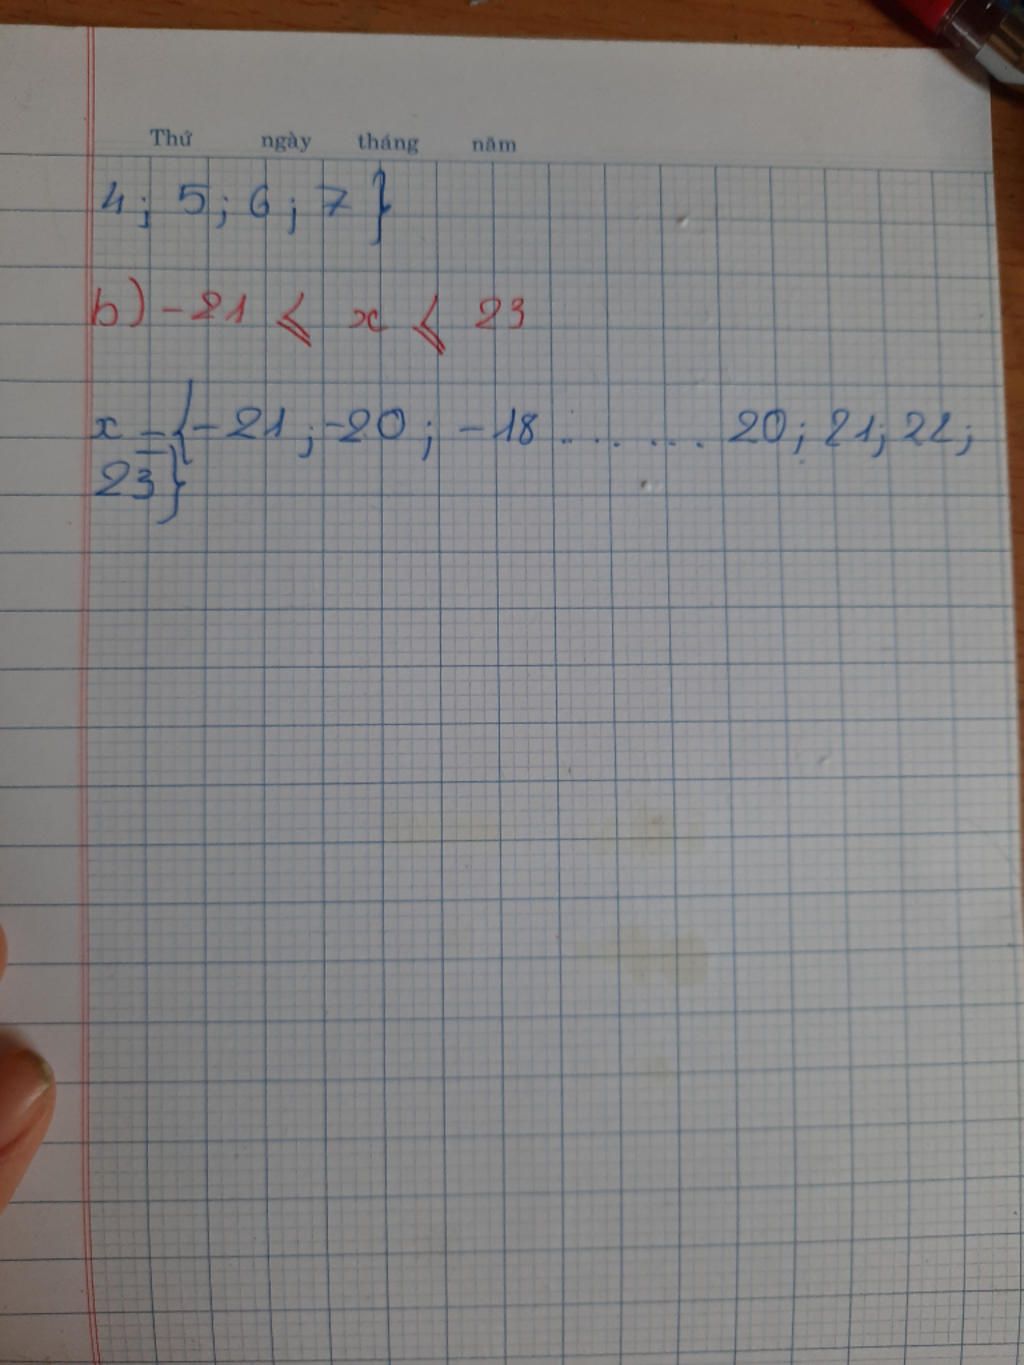 Thứ ngày tháng năm
4; 5; 6; 7 }
b) -21 ⩽ x ⩽ 23
x = {-21; -20; -18 ....... 20; 21; 22;
23}